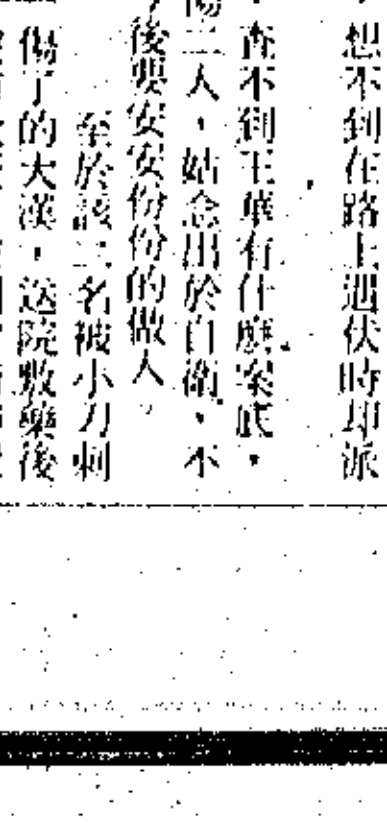 ，想不到在路上遇伏時却派
，查不到王華有什麼案底，
傷二人，姑念出於自衛，不
後要安安份份的做人。
至於該二名被小刀刺
傷了的大漢，送院敷藥後